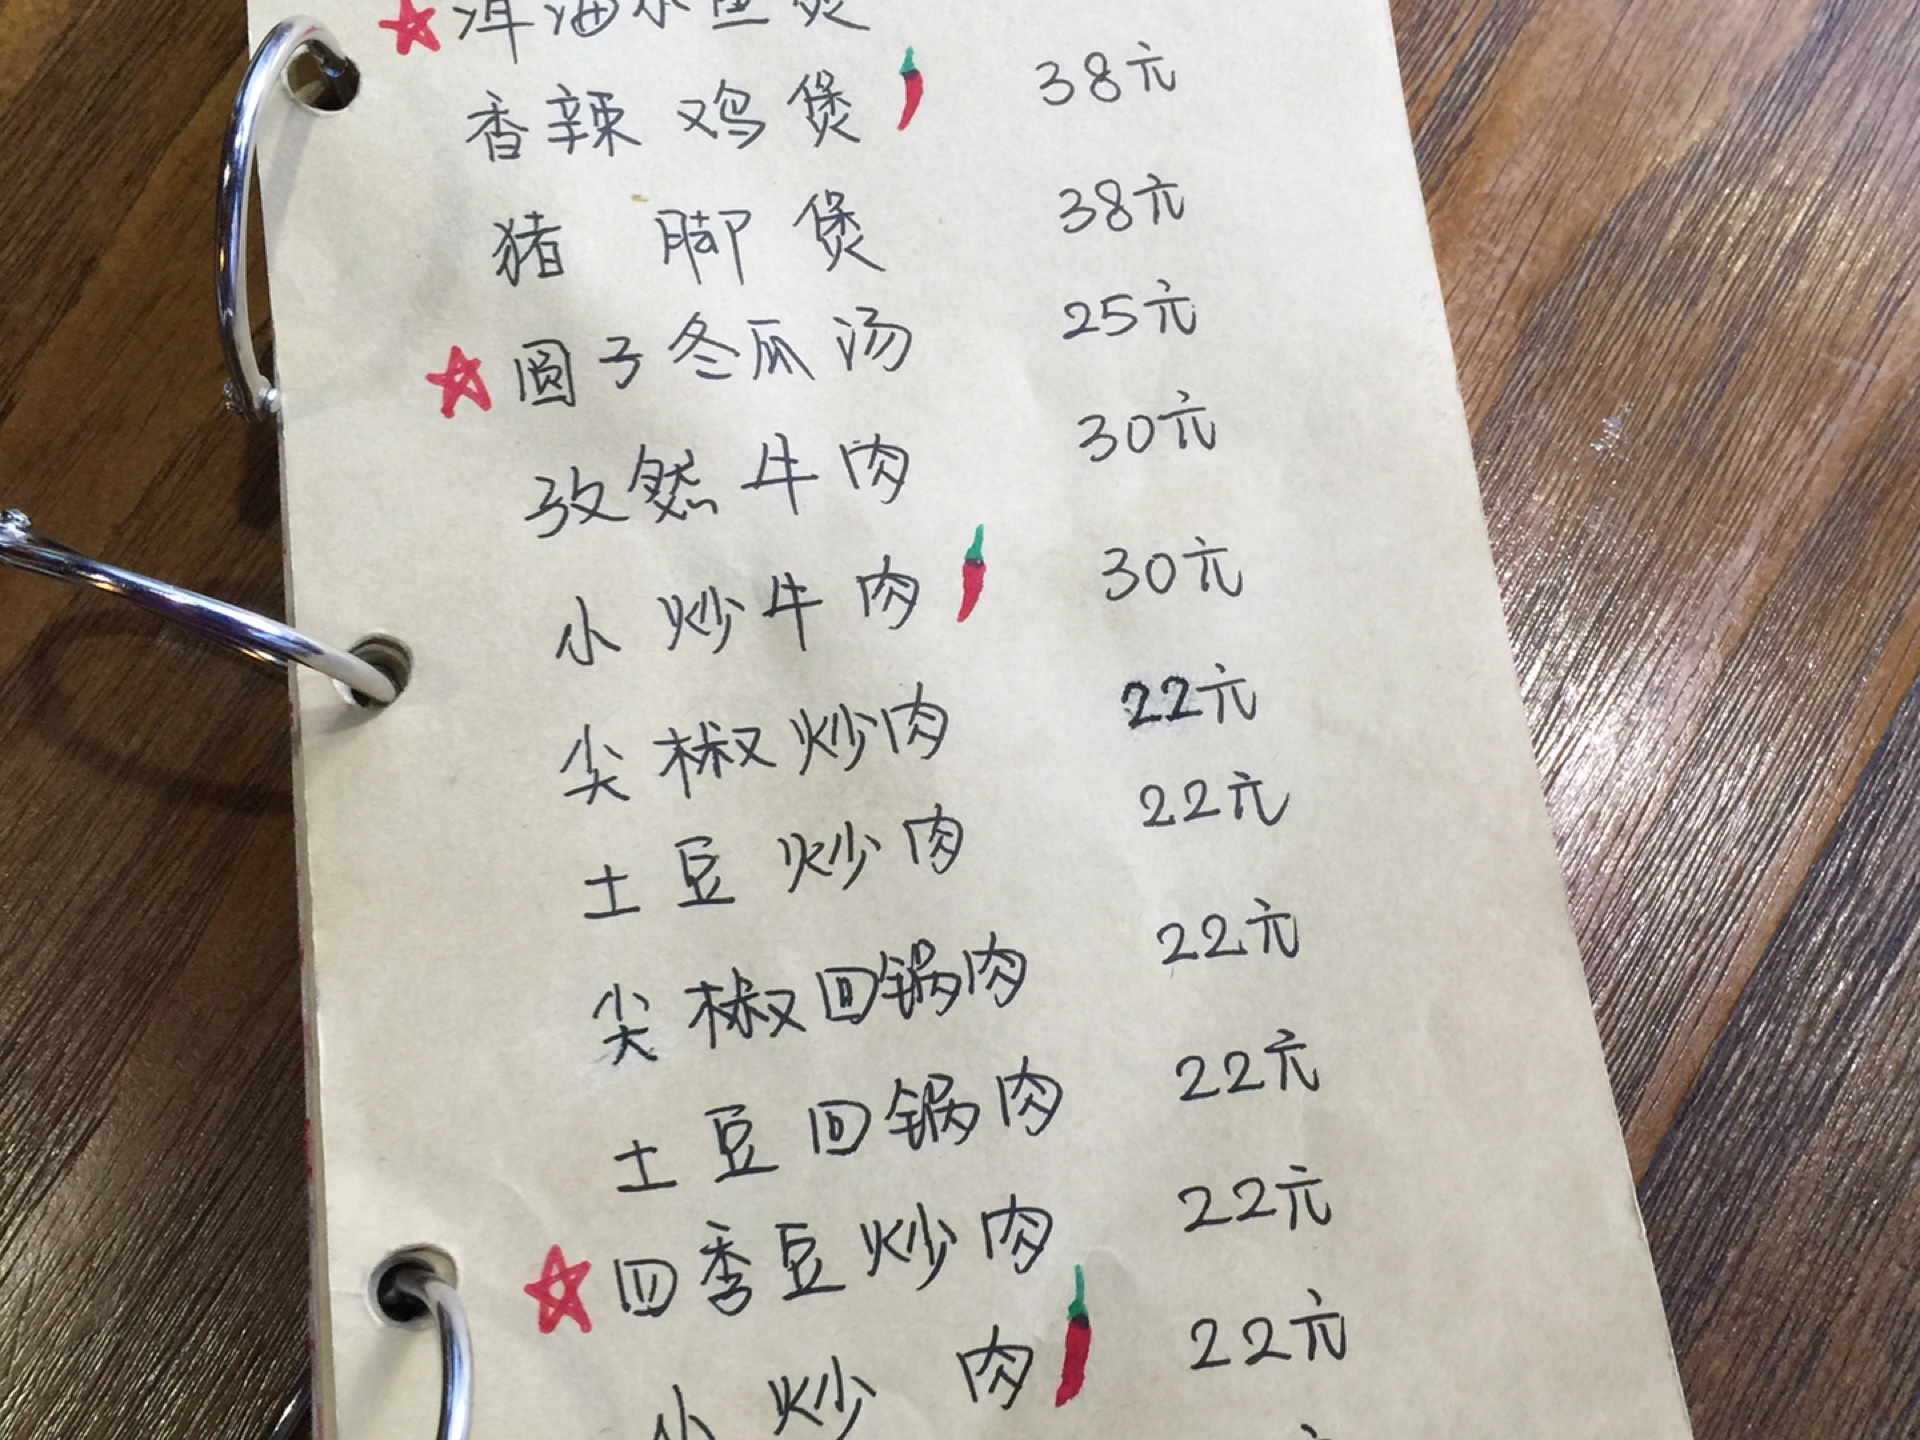 洱海小鱼煲
香辣鸡煲 38元
猪脚煲 38元
圆子冬瓜汤 25元
孜然牛肉 30元
小炒牛肉 30元
尖椒炒肉 22元
土豆炒肉 22元
尖椒回锅肉 22元
土豆回锅肉 22元
四季豆炒肉 22元
小炒肉 22元